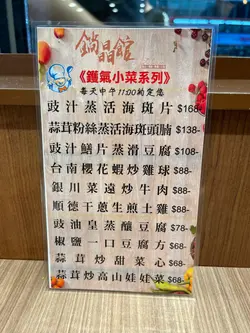 鍋晶館
《鑊氣小菜系列》
每天中午11:00後定您
豉汁蒸活海斑片$168-
蒜茸粉絲蒸活海斑頭腩$138-
豉汁鱔片蒸滑豆腐$108-
台南櫻花蝦炒雞球$88-
銀川菜遠炒牛肉$88-
順德干蔥生煎土雞$88-
豉油皇蒸釀豆腐$78-
椒鹽一口豆腐方$68-
蒜茸炒甜菜心$68-
蒜茸炒高山娃娃菜$68-